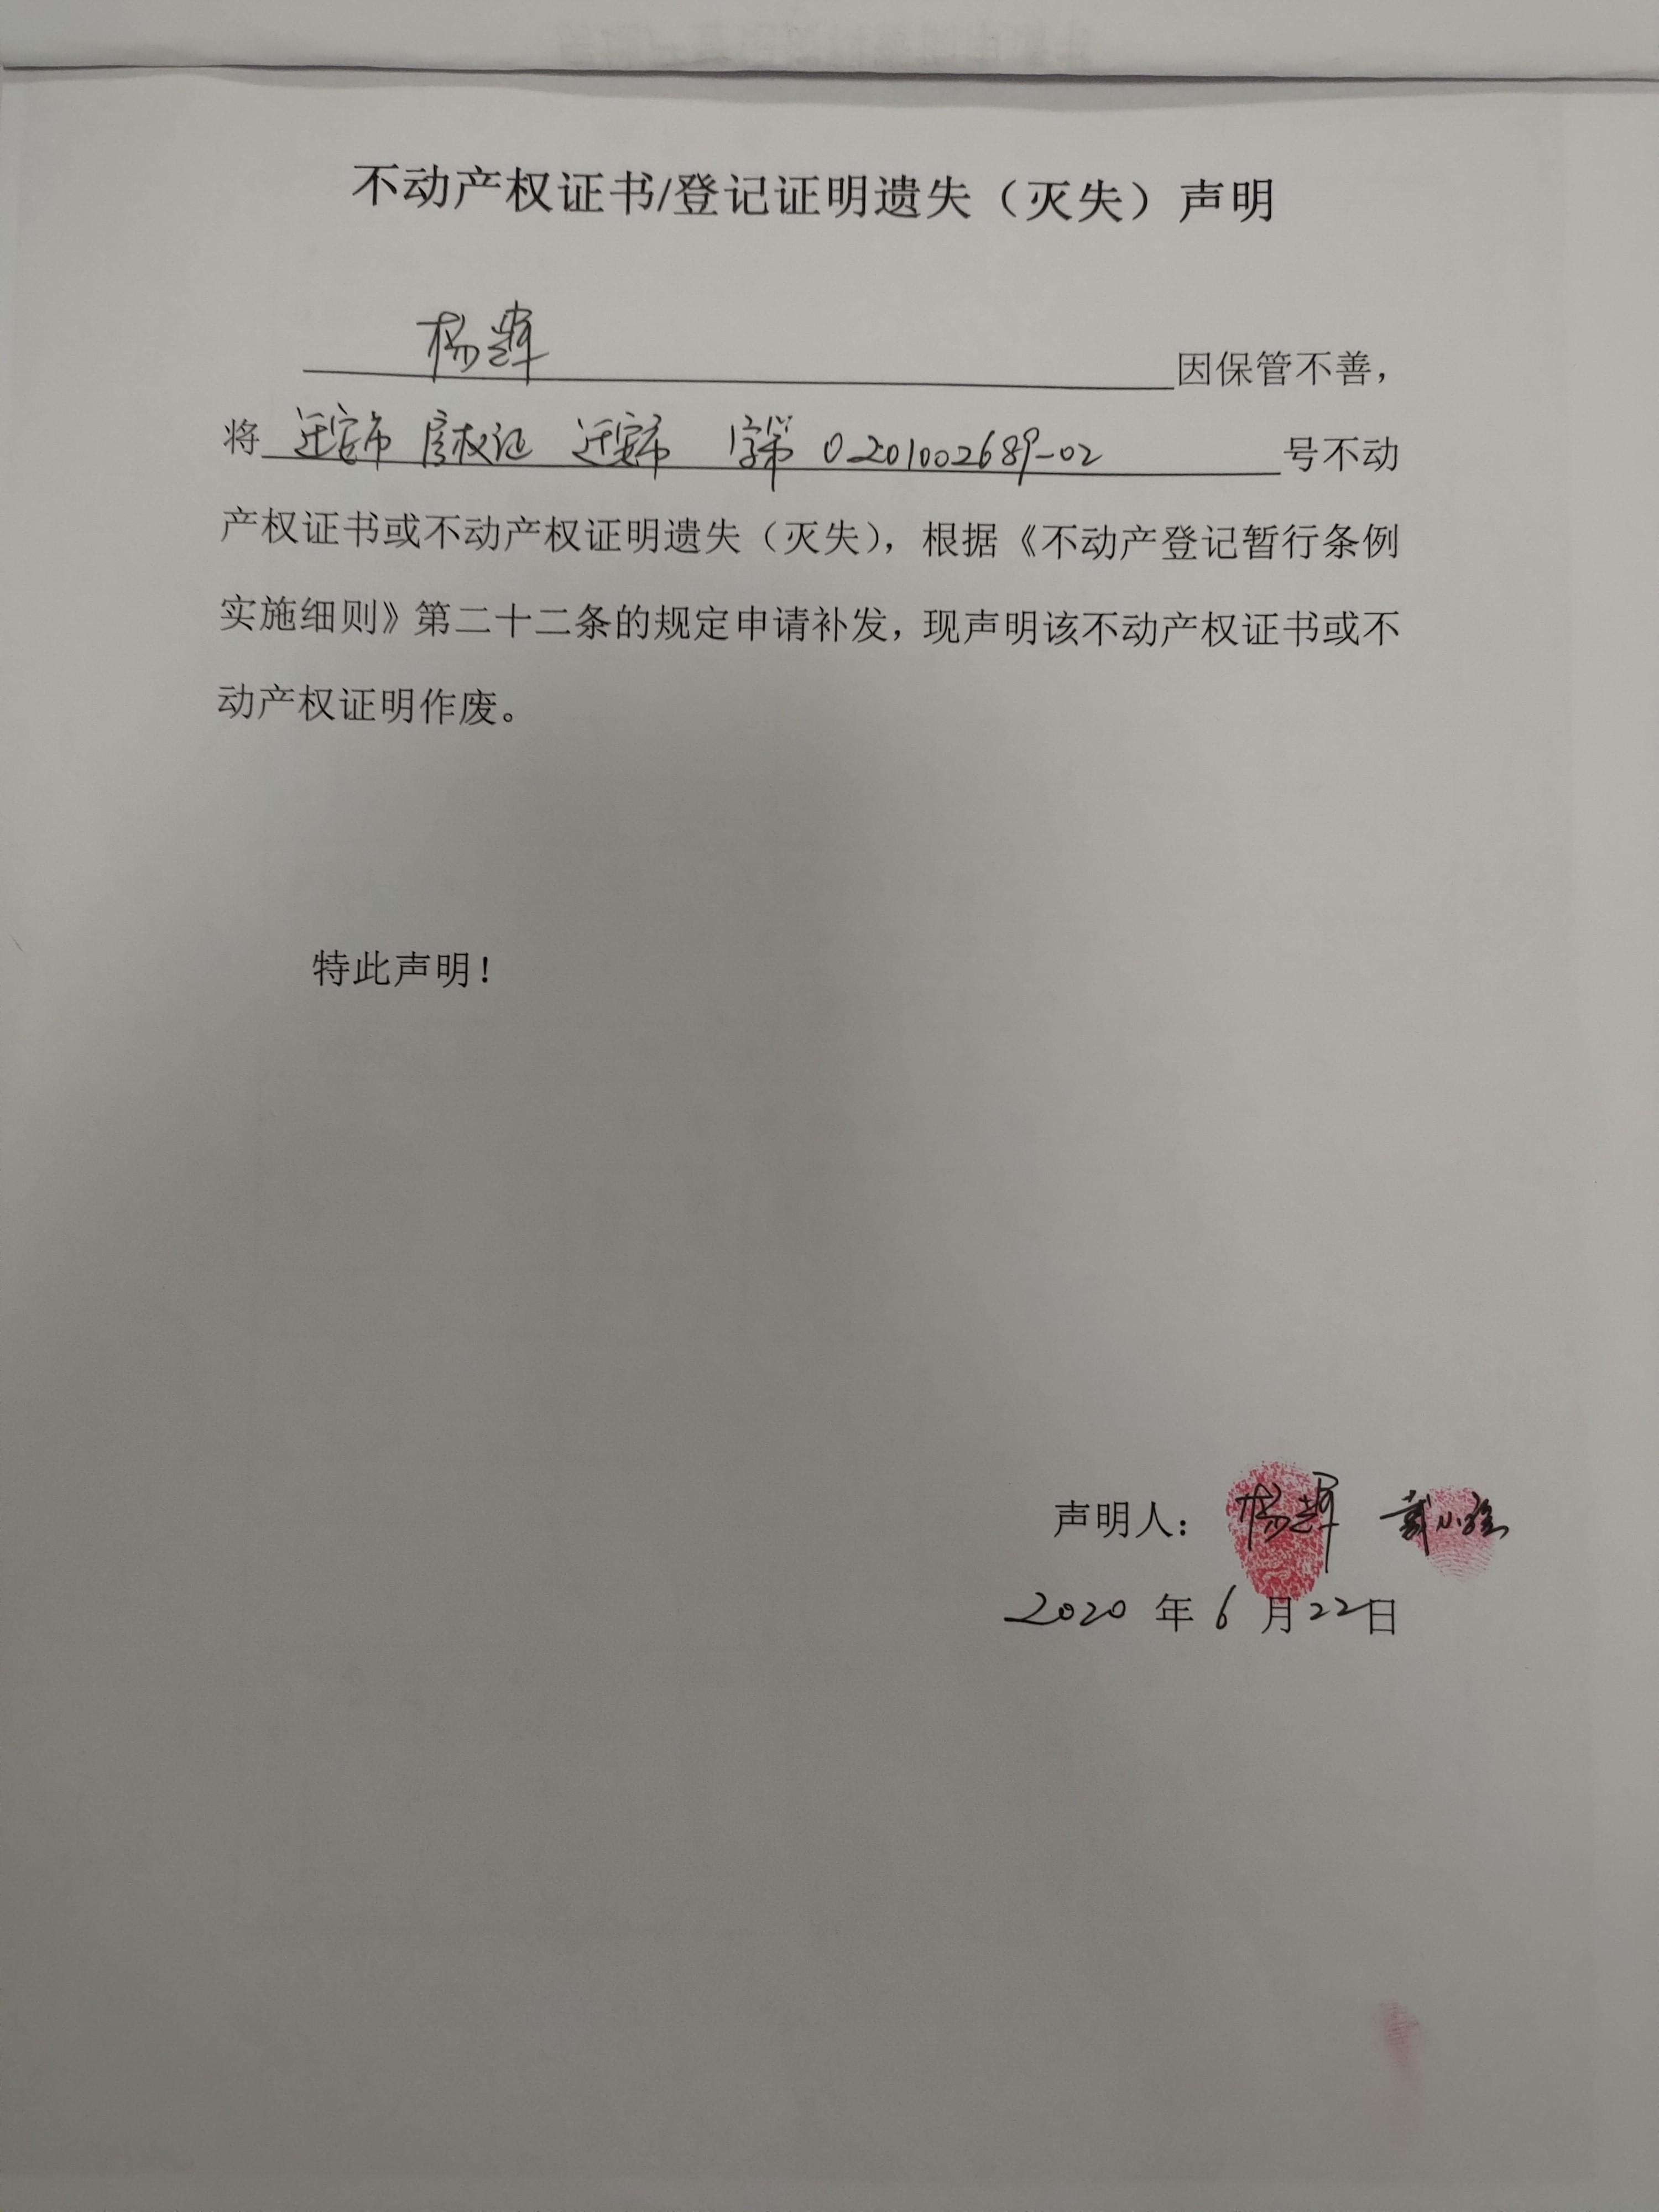 不动产权证书/登记证明遗失（灭失）声明
杨辉
因保管不善，
将 迁安市 房权证 迁安市 字第 0201002689-02 号不动
产权证书或不动产权证明遗失（灭失），根据《不动产登记暂行条例
实施细则》第二十二条的规定申请补发，现声明该不动产权证书或不
动产权证明作废。
特此声明！
声明人：杨辉 戴小
2020 年 6 月 22 日